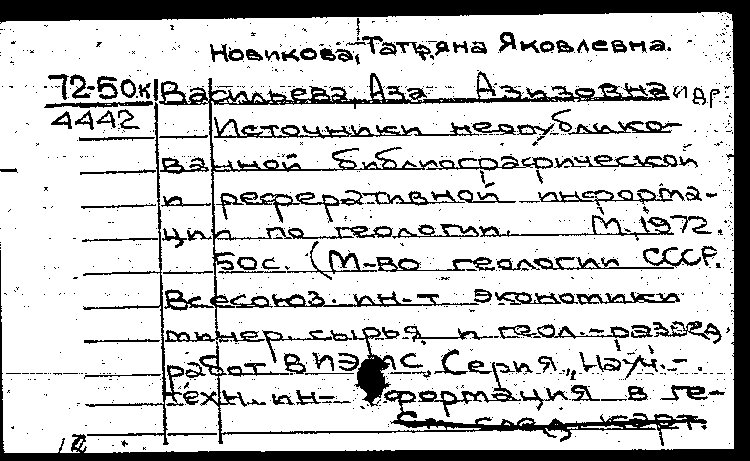 Новикова, Татьяна Яковлевна.
72-50к Васильева, Аза Азизовна и др
4442 Источники неопублико-
ванной библиографической
и реферативной информа-
ции по геологии. М., 1972.
50с. (М-во геологии СССР.
Всесоюз. ин-т экономики
минер. сырья и геол.-развед.
работ ВИЭМС, Серия „Науч.-
техн. ин- формация в ге-
См след карт.